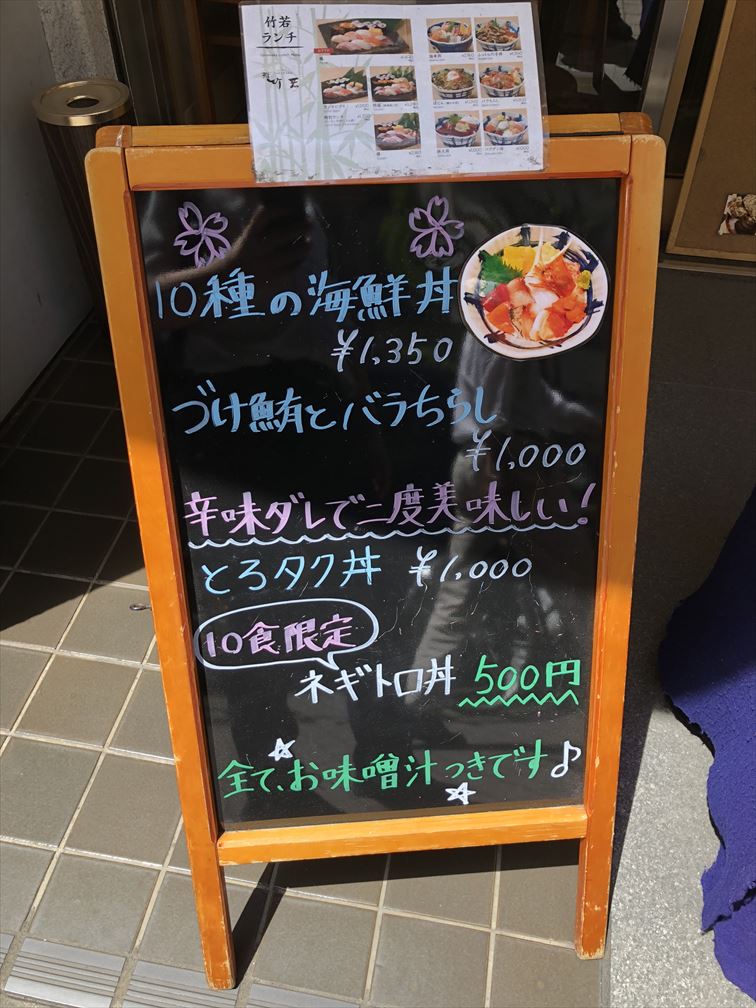 竹若
ランチ
10種の海鮮丼
¥1,350
づけ鮪とバラちらし
¥1,000
辛味ダレで二度美味しい!
とろタク丼 ¥1,000
10食限定
ネギトロ丼 500円
全て、お味噌汁つきです♪